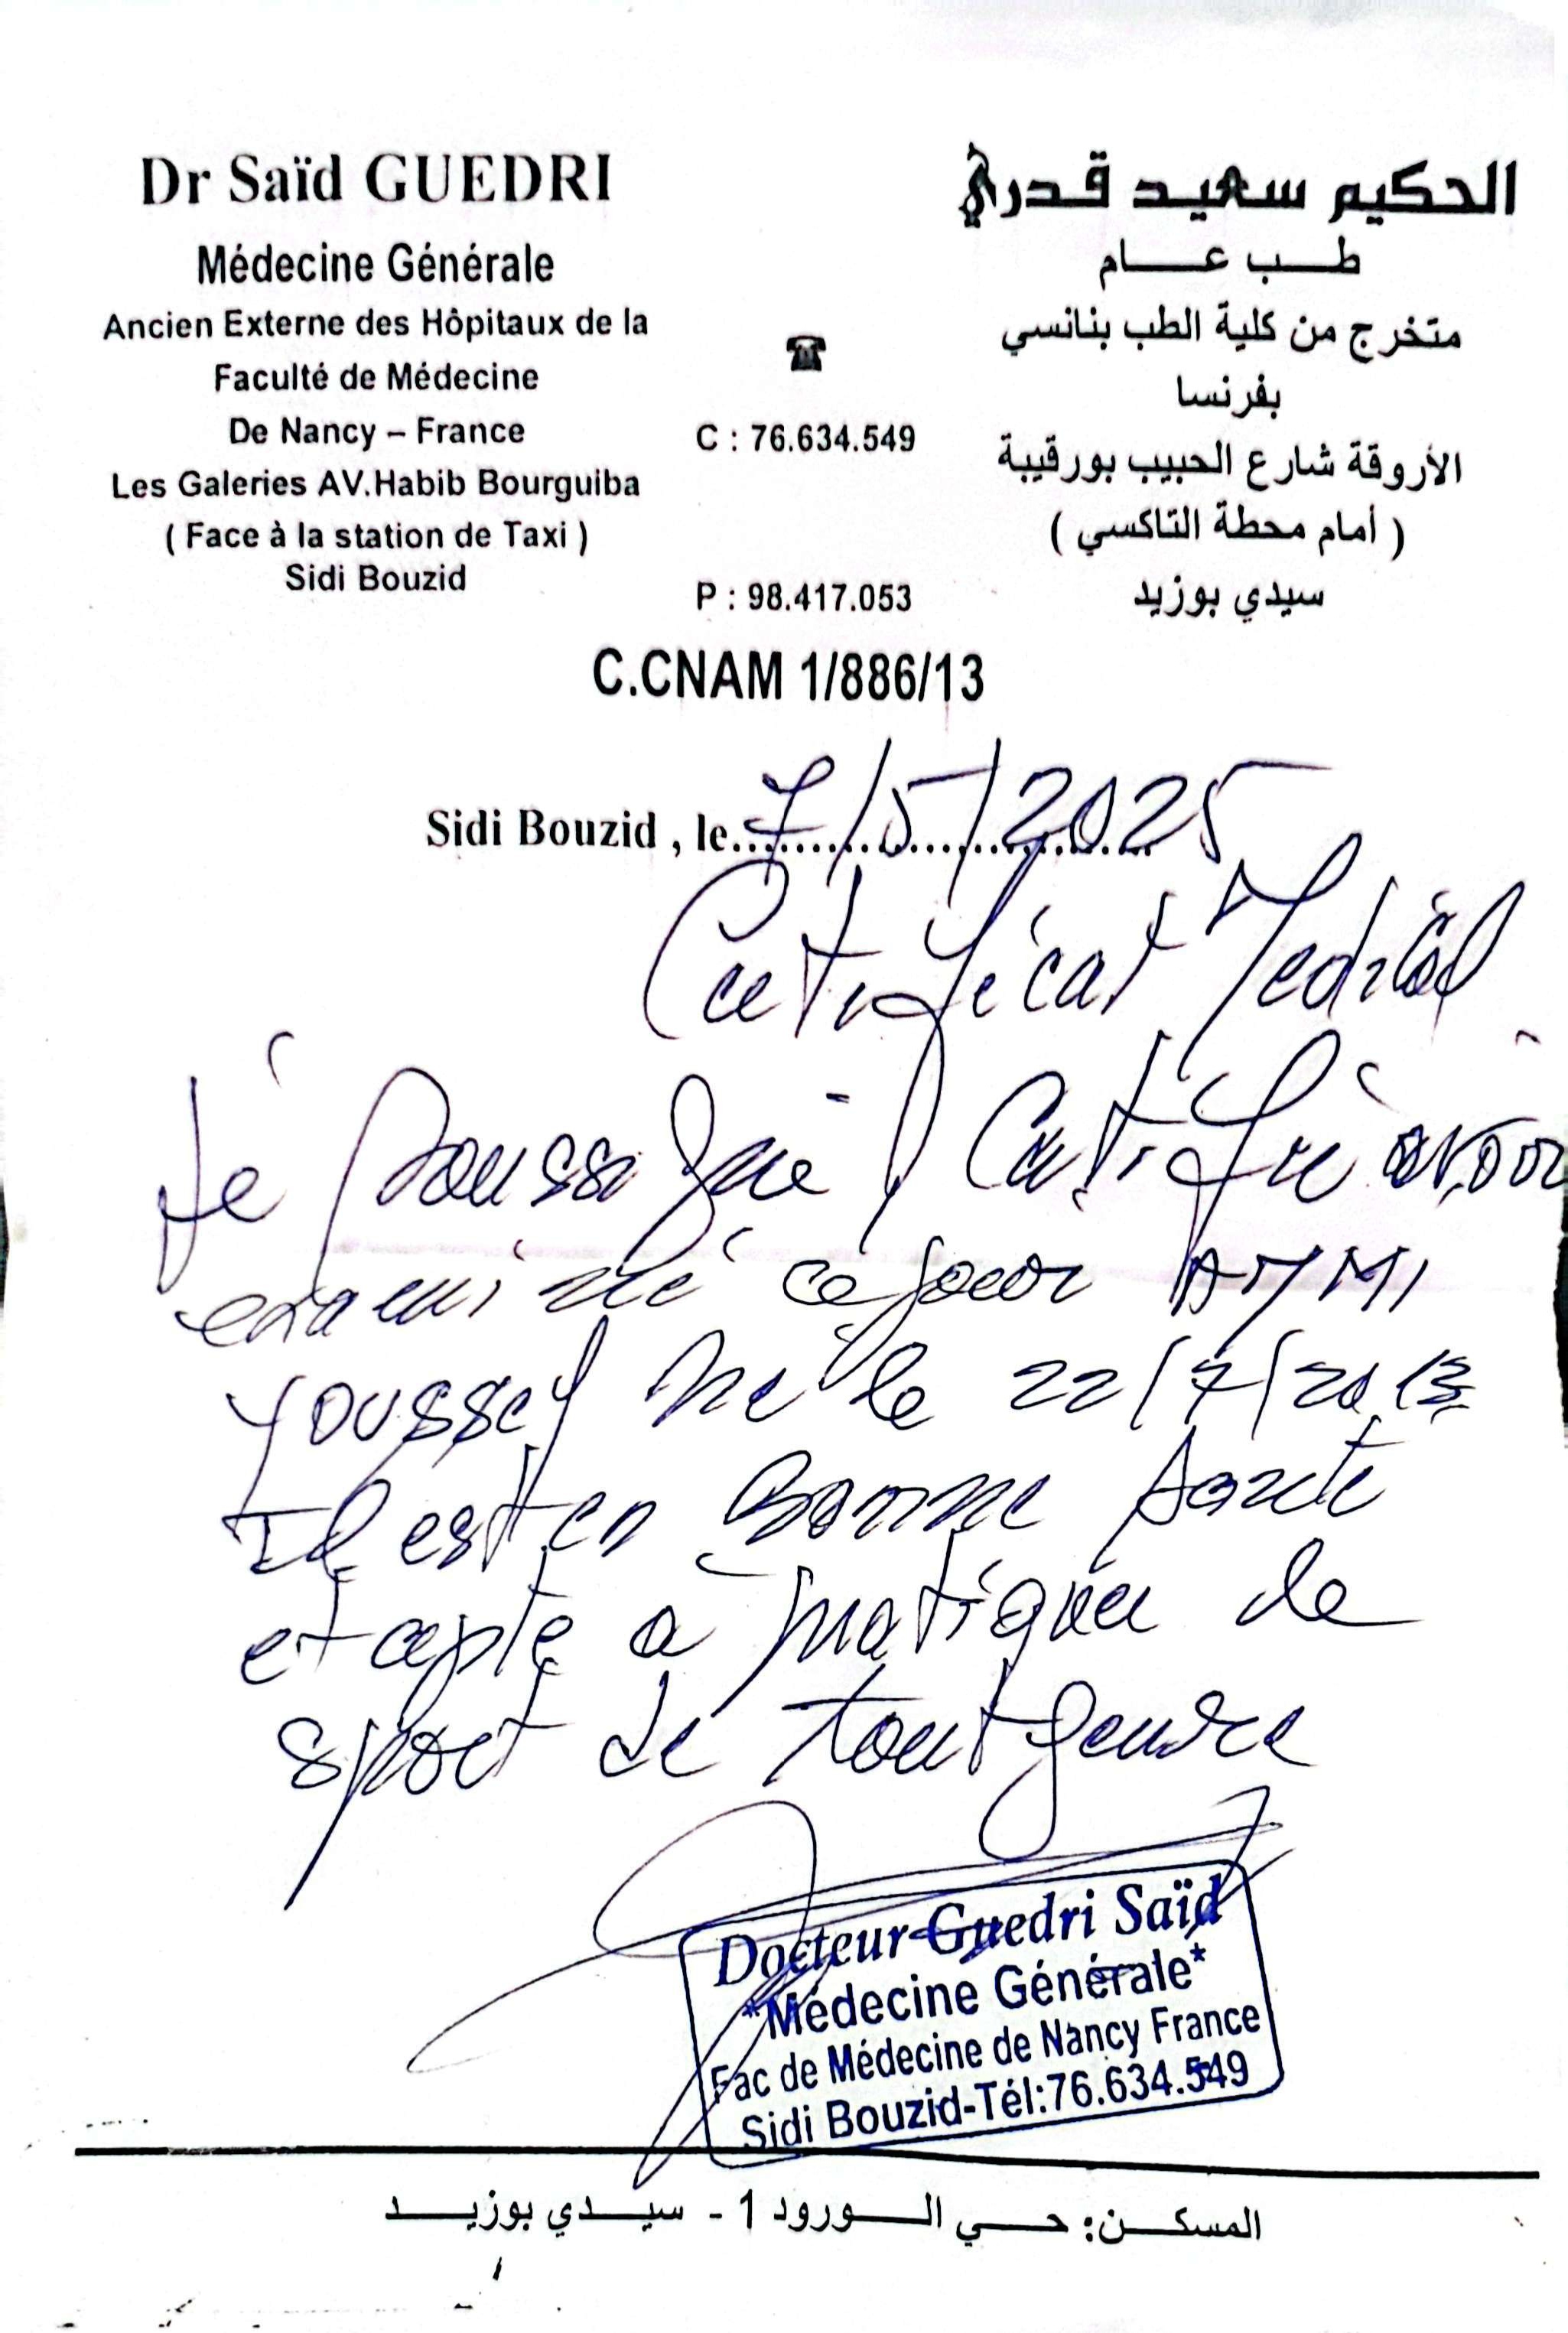 Dr Saïd GUEDRI
Médecine Générale
Ancien Externe des Hôpitaux de la
Faculté de Médecine
De Nancy – France
Les Galeries AV.Habib Bourguiba
( Face à la station de Taxi )
Sidi Bouzid
☎
C : 76.634.549
P : 98.417.053
الحكيم سعيد قدري
طب عام
متخرج من كلية الطب بنانسي
بفرنسا
الأروقة شارع الحبيب بورقيبة
( أمام محطة التاكسي )
سيدي بوزيد
C.CNAM 1/886/13
Sidi Bouzid , le 7/5/2025
Certificat Medical
Je soussigné Certifie avoir
examiné ce jour AMMI
Youssef né le 22/7/2013
Il est en Bonne santé
et apte à pratiquer le
sport de tout genre
Docteur Guedri Saïd
*Médecine Générale*
Fac de Médecine de Nancy France
Sidi Bouzid-Tél:76.634.549
المسكن: حي الورود 1 - سيدي بوزيد